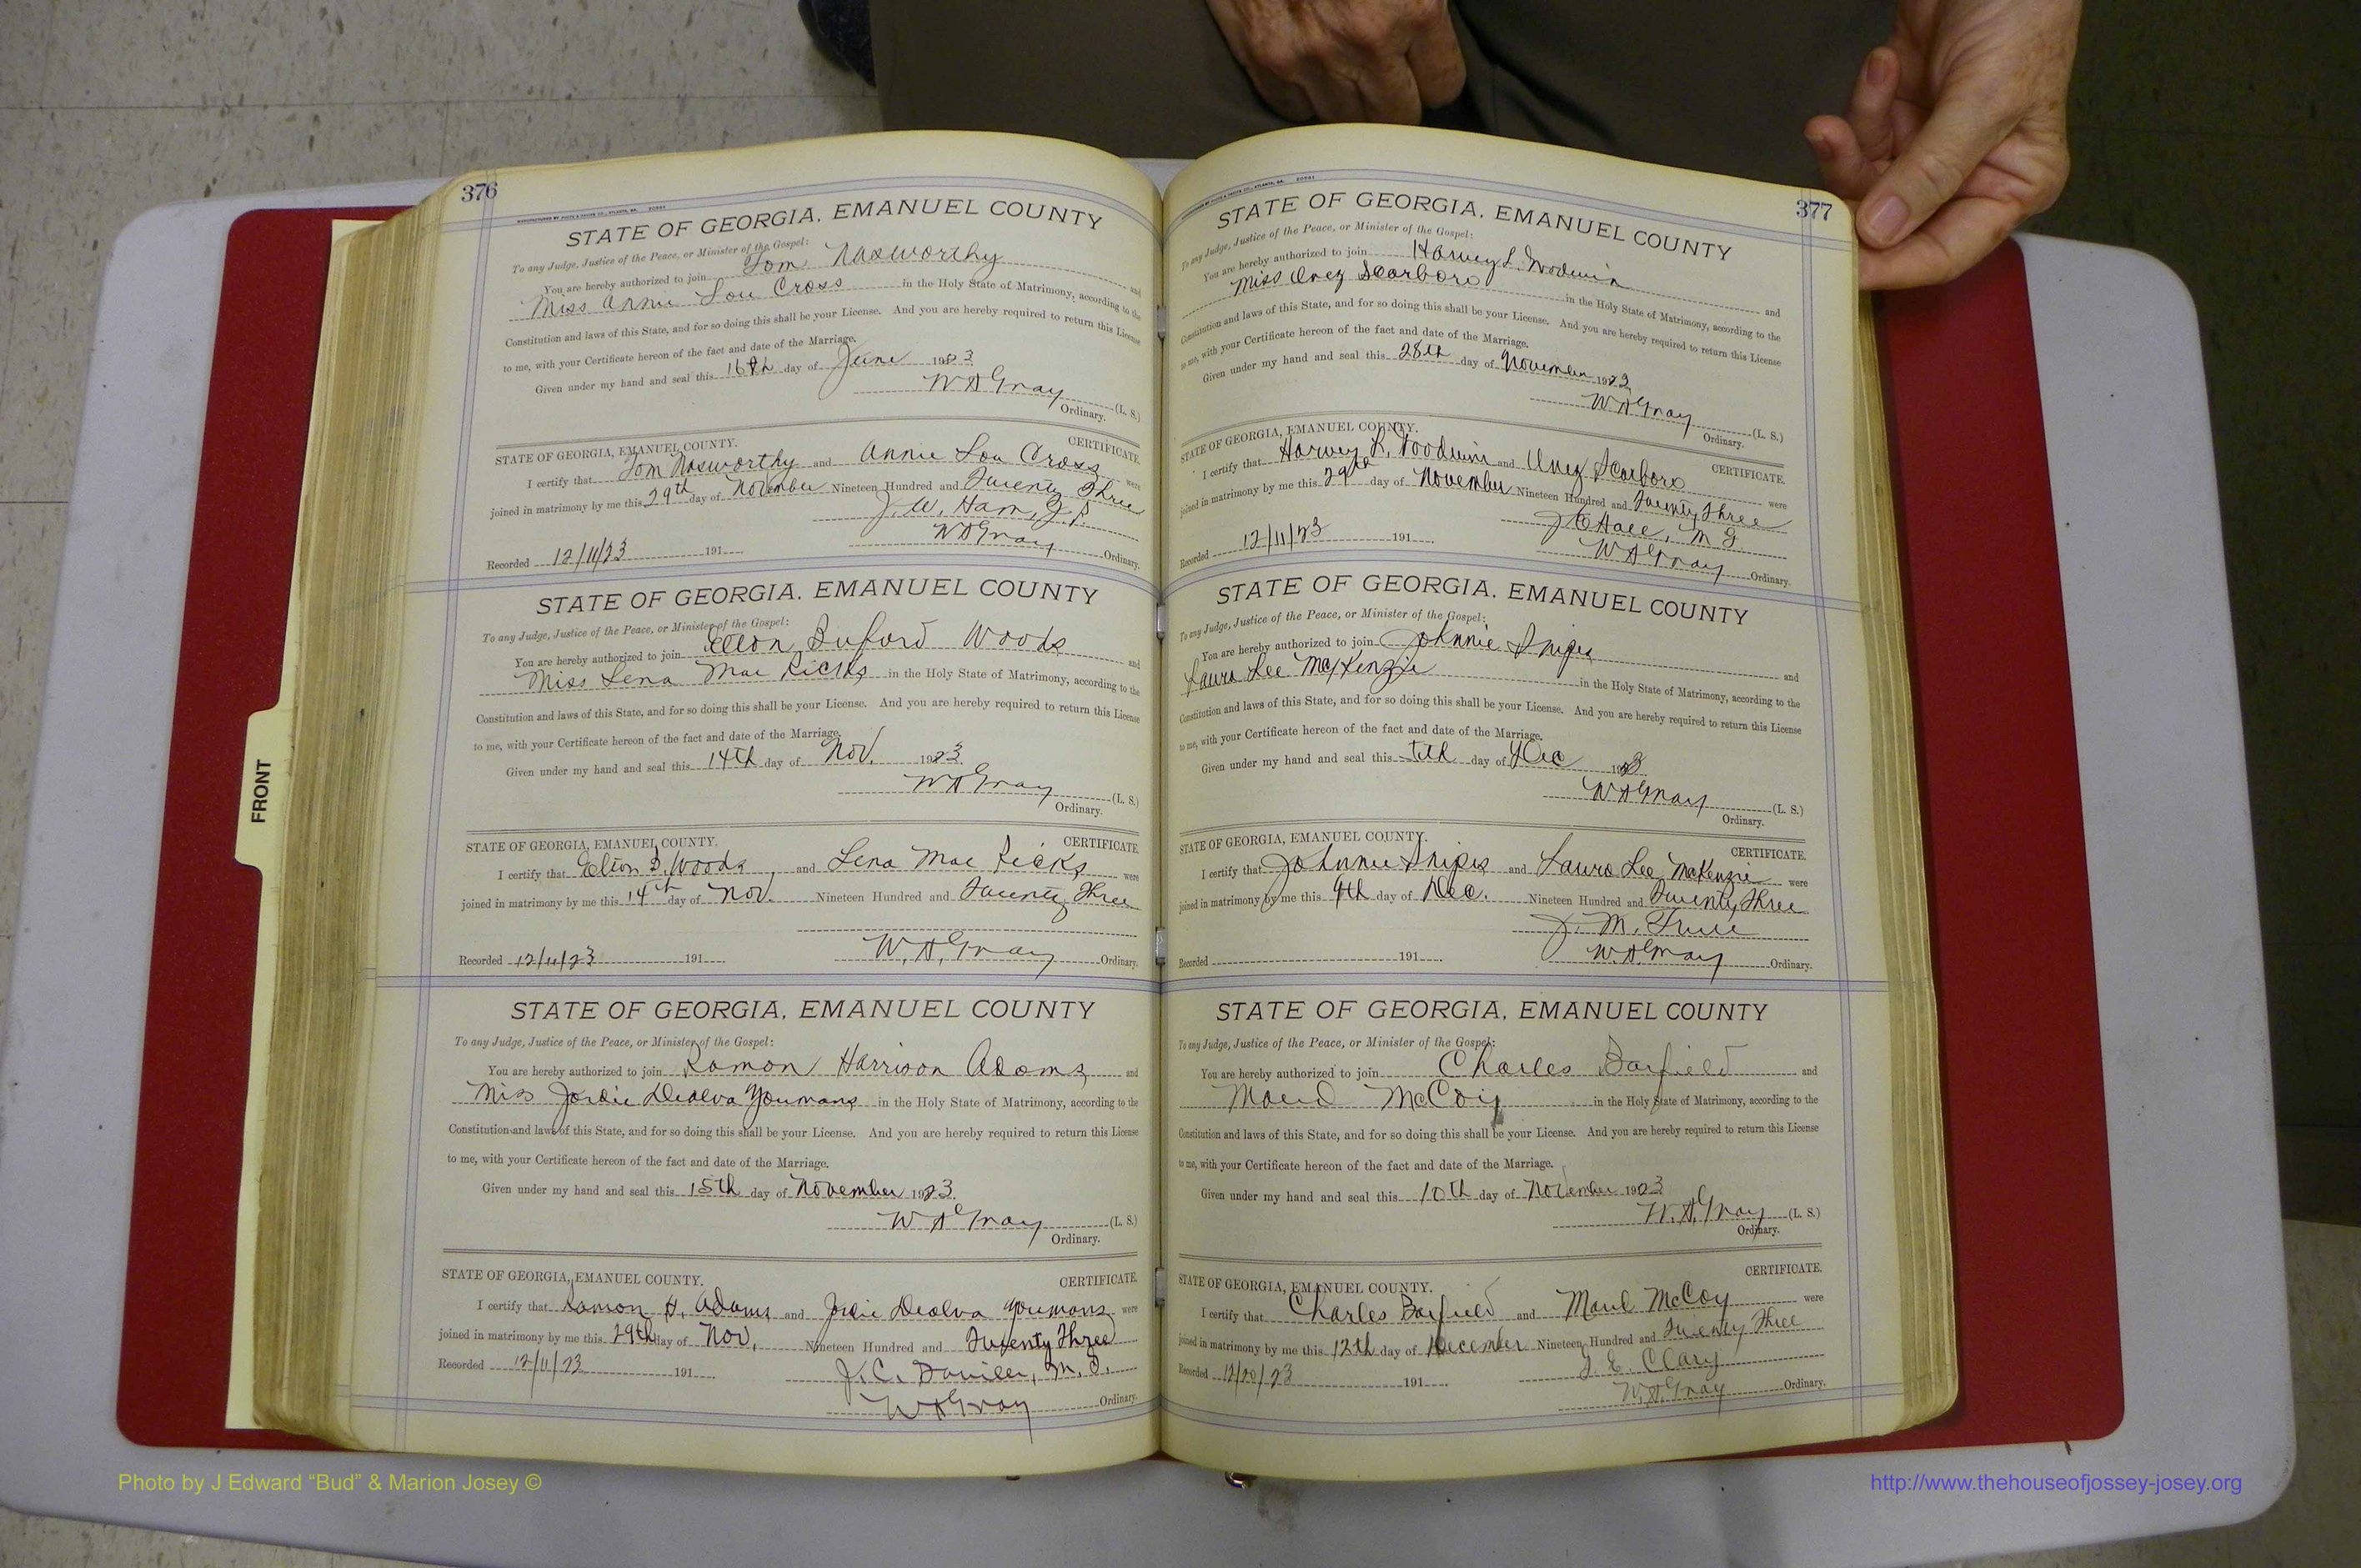 376
STATE OF GEORGIA, EMANUEL COUNTY
To any Judge, Justice of the Peace, or Minister of the Gospel:
You are hereby authorized to join Tom Nasworthy and
Miss Annie Lou Cross in the Holy State of Matrimony, according to the
Constitution and laws of this State, and for so doing this shall be your License. And you are hereby required to return this License
to me, with your Certificate hereon of the fact and date of the Marriage.
Given under my hand and seal this 16th day of June 1923
W H Gray (L. S.)
Ordinary.
STATE OF GEORGIA, EMANUEL COUNTY. CERTIFICATE.
I certify that Tom Nasworthy and Annie Lou Cross were
joined in matrimony by me this 29th day of November Nineteen Hundred and Twenty Three
J. W. Ham, J. P.
Recorded 12/11/23 191 W H Gray Ordinary.
STATE OF GEORGIA, EMANUEL COUNTY
To any Judge, Justice of the Peace, or Minister of the Gospel:
You are hereby authorized to join Elton Buford Woods and
Miss Lena Mae Ricks in the Holy State of Matrimony, according to the
Constitution and laws of this State, and for so doing this shall be your License. And you are hereby required to return this License
to me, with your Certificate hereon of the fact and date of the Marriage.
Given under my hand and seal this 14th day of Nov. 1923.
W H Gray (L. S.)
Ordinary.
STATE OF GEORGIA, EMANUEL COUNTY. CERTIFICATE
I certify that Elton B. Woods, and Lena Mae Ricks were
joined in matrimony by me this 14th day of Nov. Nineteen Hundred and Twenty Three
Recorded 12/11/23 191 W. H. Gray Ordinary.
STATE OF GEORGIA, EMANUEL COUNTY
To any Judge, Justice of the Peace, or Minister of the Gospel:
You are hereby authorized to join Ramon Harrison Adams and
Miss Jordie Dealva Youmans in the Holy State of Matrimony, according to the
Constitution and laws of this State, and for so doing this shall be your License. And you are hereby required to return this License
to me, with your Certificate hereon of the fact and date of the Marriage.
Given under my hand and seal this 15th day of November 1923.
W H Gray (L. S.)
Ordinary.
STATE OF GEORGIA, EMANUEL COUNTY. CERTIFICATE.
I certify that Ramon H. Adams and Jordie Dealva Youmans were
joined in matrimony by me this 29th day of Nov. Nineteen Hundred and Twenty Three
Recorded 12/11/23 191 J. C.
W H Gray Ordinary.
377
STATE OF GEORGIA, EMANUEL COUNTY
To any Judge, Justice of the Peace, or Minister of the Gospel:
You are hereby authorized to join Harvey L. Woodwin and
Miss Inez Scarboro in the Holy State of Matrimony, according to the
Constitution and laws of this State, and for so doing this shall be your License. And you are hereby required to return this License
to me, with your Certificate hereon of the fact and date of the Marriage.
Given under my hand and seal this 28th day of November 1923
W H Gray (L. S.)
Ordinary.
STATE OF GEORGIA, EMANUEL COUNTY. CERTIFICATE.
I certify that Harvey and Inez Scarboro were
joined in matrimony by me this 29th day of November Nineteen Hundred and Twenty Three
M G
Recorded 12/11/23 191 W H Gray Ordinary.
STATE OF GEORGIA, EMANUEL COUNTY
To any Judge, Justice of the Peace, or Minister of the Gospel:
You are hereby authorized to join Johnnie Snipes and
Laura Lee McKenzie in the Holy State of Matrimony, according to the
Constitution and laws of this State, and for so doing this shall be your License. And you are hereby required to return this License
to me, with your Certificate hereon of the fact and date of the Marriage.
Given under my hand and seal this day of Dec 1923
W H Gray (L. S.)
Ordinary.
STATE OF GEORGIA, EMANUEL COUNTY. CERTIFICATE.
I certify that Johnnie Snipes and Laura Lee McKenzie were
joined in matrimony by me this 9th day of Dec. Nineteen Hundred and Twenty Three
J. M.
Recorded 191 W. H. Gray Ordinary.
STATE OF GEORGIA, EMANUEL COUNTY
To any Judge, Justice of the Peace, or Minister of the Gospel:
You are hereby authorized to join Charles Barfield and
Maud McCoy in the Holy State of Matrimony, according to the
Constitution and laws of this State, and for so doing this shall be your License. And you are hereby required to return this License
to me, with your Certificate hereon of the fact and date of the Marriage.
Given under my hand and seal this 10th day of November 1923
W. H. Gray (L. S.)
Ordinary.
STATE OF GEORGIA, EMANUEL COUNTY. CERTIFICATE.
I certify that Charles Barfield and Maud McCoy were
joined in matrimony by me this 12th day of December Nineteen Hundred and Twenty Three
Recorded 12/20/23 191 E. Clary
W. H. Gray Ordinary.
FRONT
Photo by J Edward “Bud” & Marion Josey ©
http://www.thehouseofjossey-josey.org